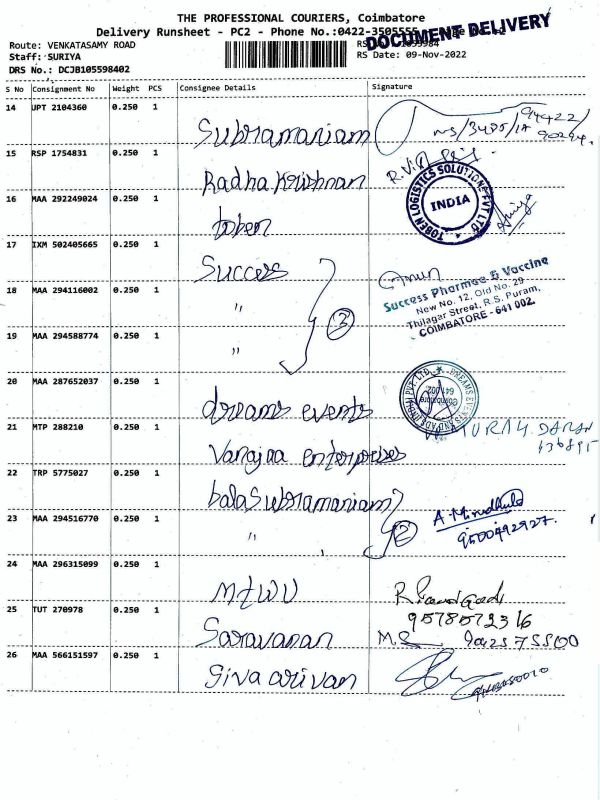 THE PROFESSIONAL COURIERS, Coimbatore
Delivery Runsheet - PC2 - Phone No.:0422-3505555
DOCUMENT DELIVERY
Route: VENKATASAMY ROAD
Staff: SURIYA
RS Date: 09-Nov-2022
DRS No.: DCJB105598402
S No Consignment No Weight PCS Consignee Details Signature
14 UPT 2104360 0.250 1 Subramaniam
15 RSP 1754831 0.250 1 Radha Krishnan
16 MAA 292249024 0.250 1 toben
TOBEN LOGISTICS SOLUTIONS PVT LTD
INDIA
17 IXM 502405665 0.250 1 Success
18 MAA 294116002 0.250 1 "
3
Success Pharmae & Vaccine
New No. 12, Old No. 29
Thilagar Street, R.S. Puram,
COIMBATORE - 641 002.
19 MAA 294588774 0.250 1 "
20 MAA 287652037 0.250 1 dreams events
21 MTP 288210 0.250 1 Vanajaa enterprises
22 TRP 5775027 0.250 1 balaSubramaniam
23 MAA 294516770 0.250 1 "
2
A Mirudhula
9500492927.
24 MAA 296315099 0.250 1
9578572316
25 TUT 270978 0.250 1 Saravanan
26 MAA 566151597 0.250 1 Siva arivan